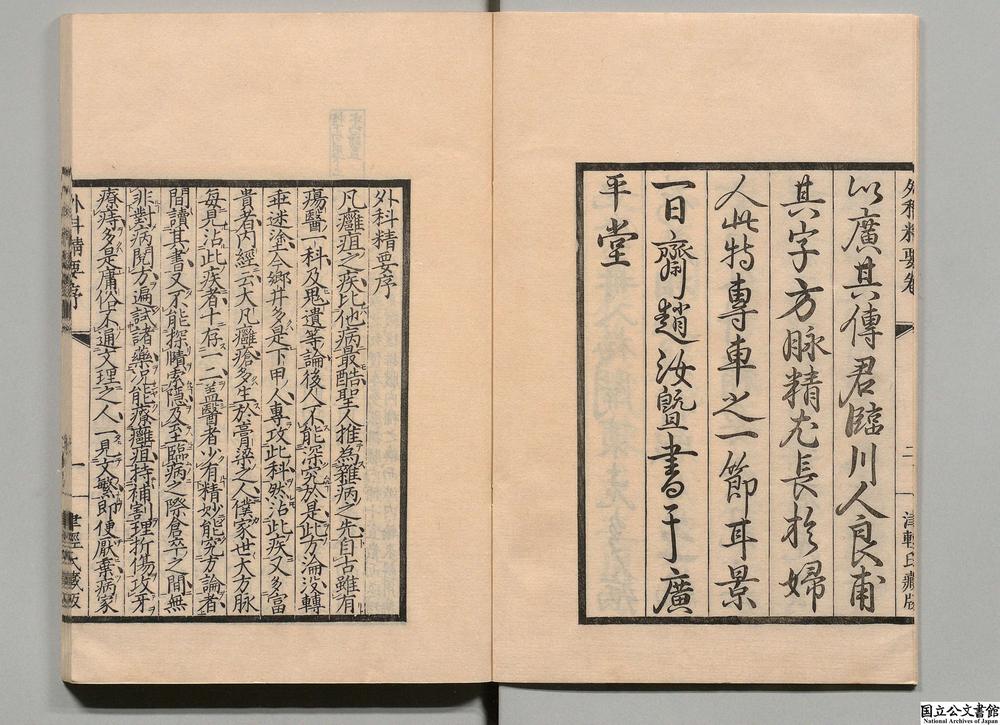 外科精要卷
二
津輕氏藏版
以廣其傳君臨川人良甫
其字方脉精尤長於婦
人此特專車之一節耳景
一日齋趙汝暨書于廣
平堂
外科精要序
凡癰疽之疾比他病最酷聖人推為雜病之先自古雖有
瘍醫一科及鬼遺等論後人不能深究於是此方淪没轉
乖迷塗今鄉井多是下甲人專攻此科然沾此疾又多富
貴者内經云大凡癰瘡多生於膏梁之人僕家世大方脉
每見沾此疾者十存一二盖醫者少有精妙能究方論者
間讀其書又不能探賾索隱及至臨病之際倉卒之間無
非對病閱方遍試諸藥况能療癰疽持補割理折傷攻牙
療痔多是庸俗不通文理之人一見文繁即便厭棄病家
外科精要序
一
津輕氏藏版
国立公文書館
National Archives of Japan